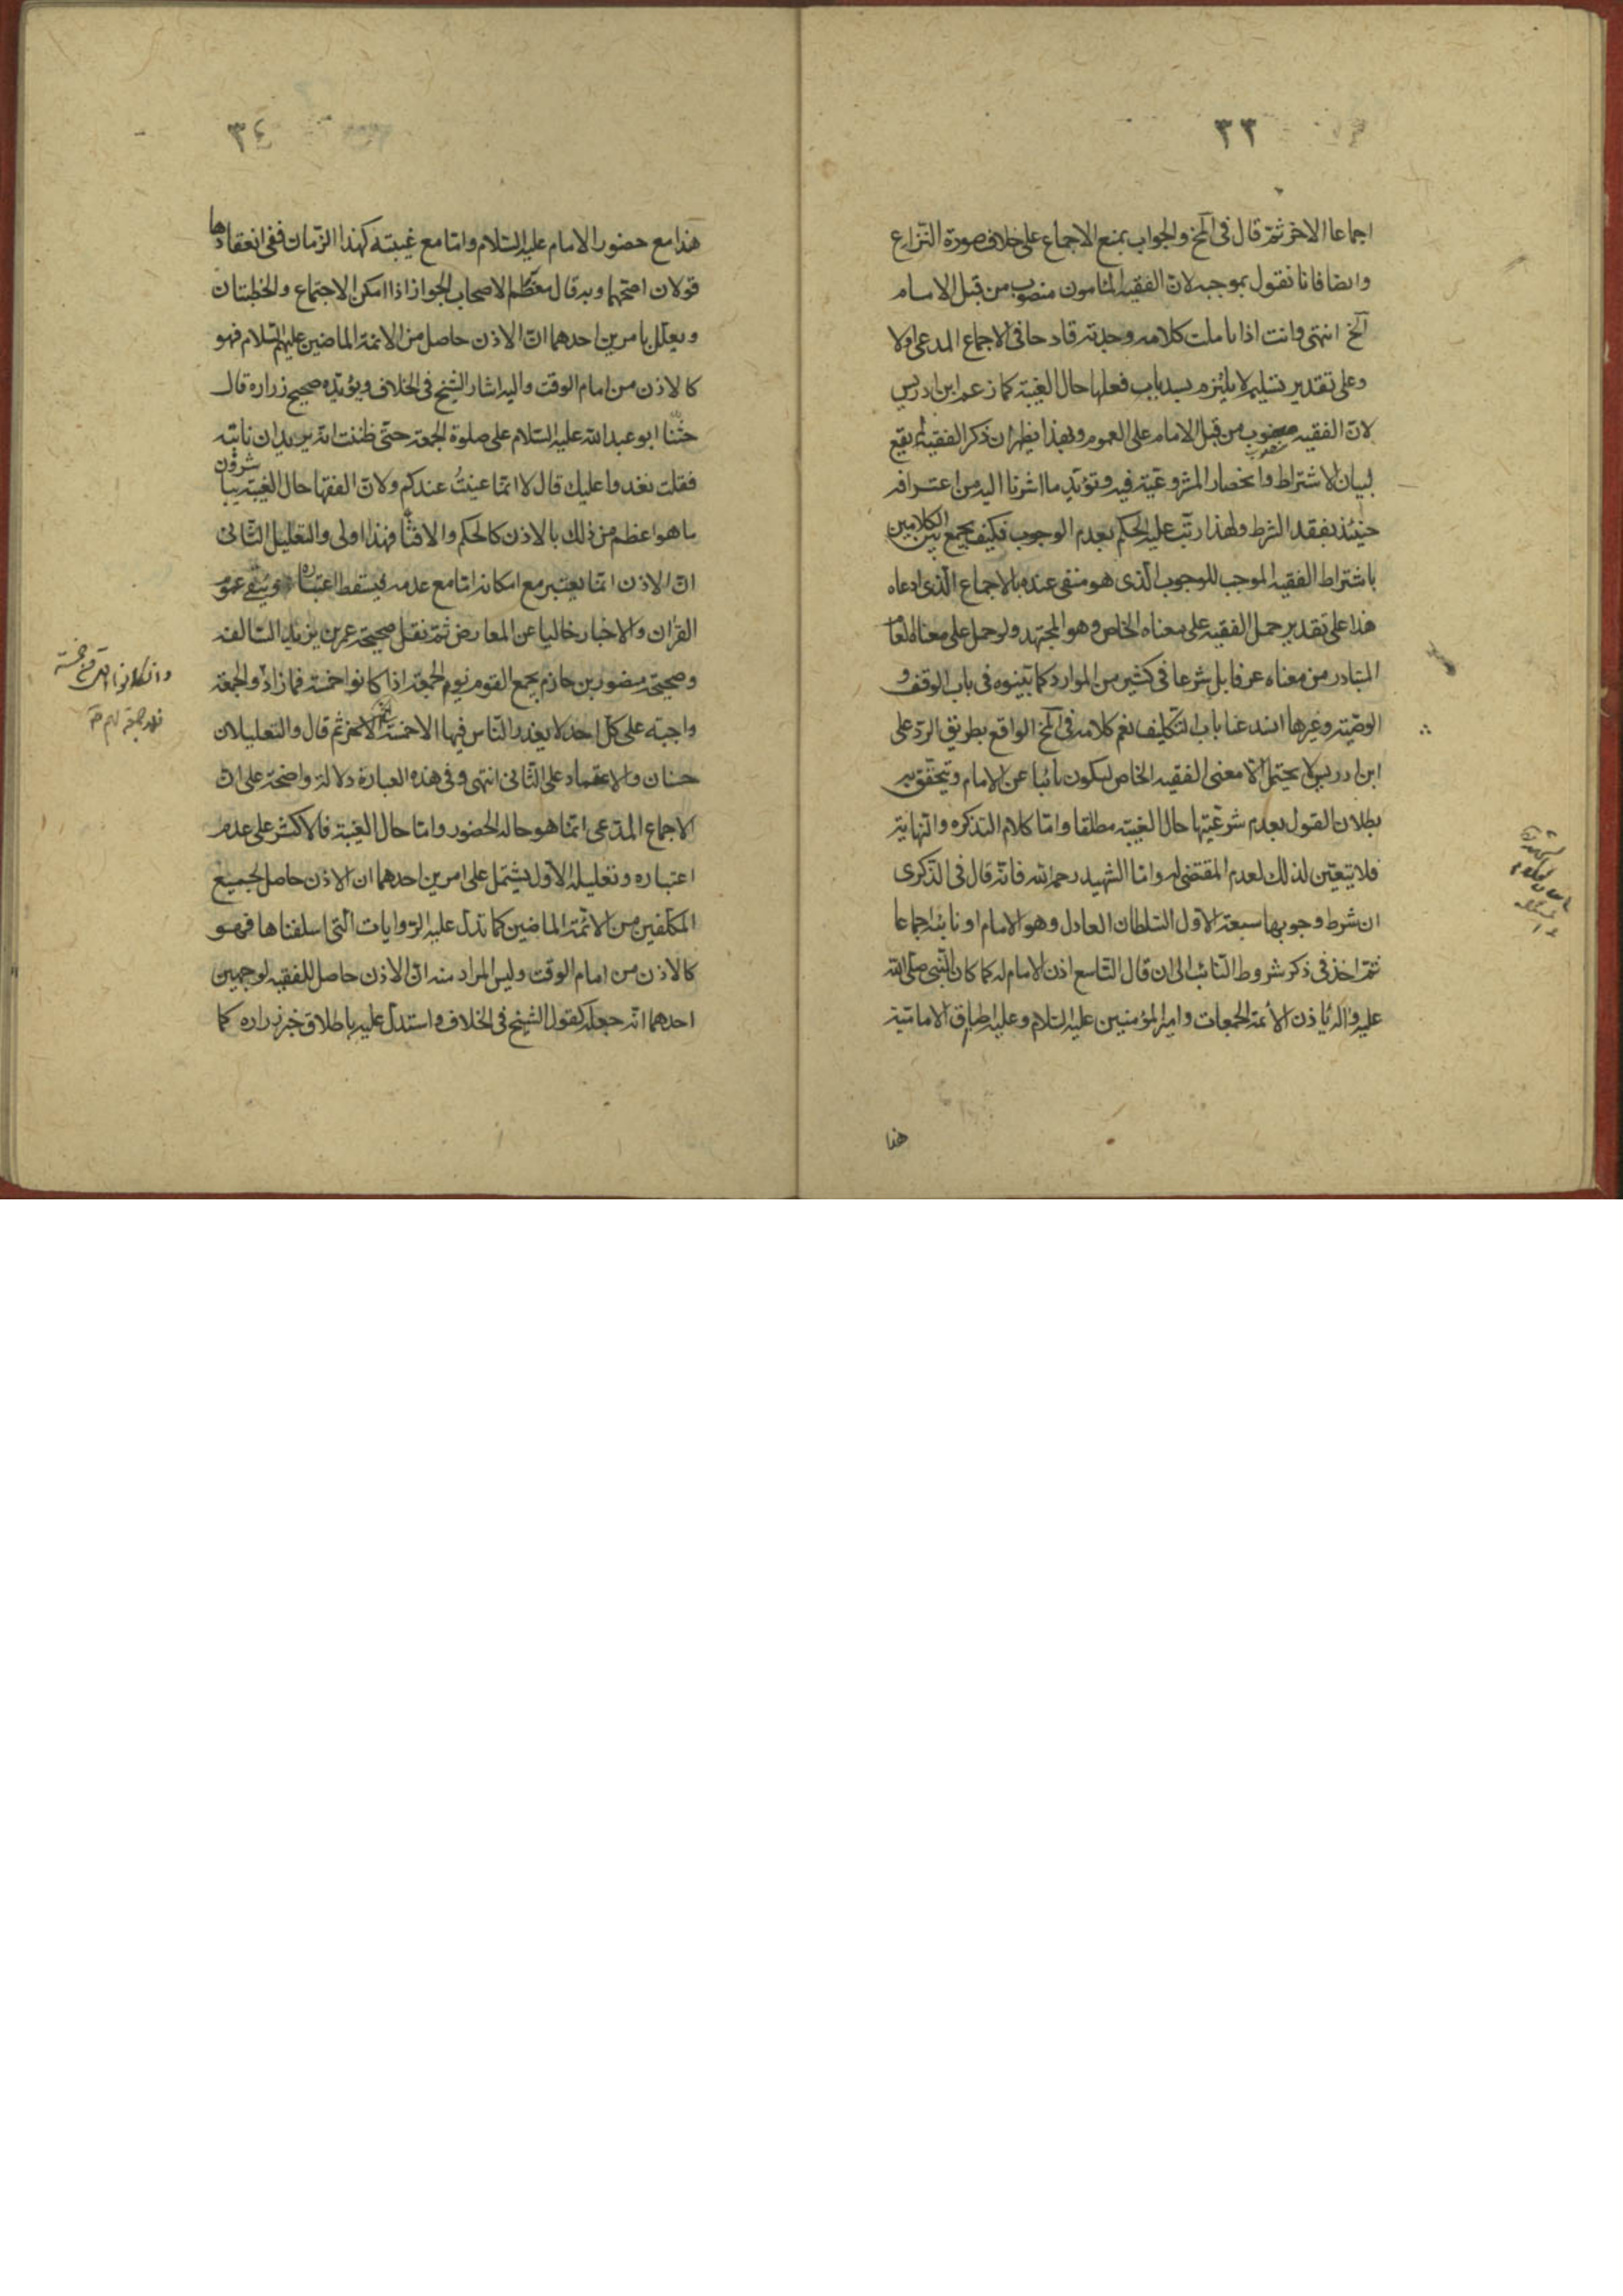 ٣٣
اجماعا الاخر ثم قال فى الخ والجواب بمنع الاجماع على خلاف صورة النزاع
وايضا فانا نقول بموجبه لان الفقيه المامون منصوب من قبل الامام
الخ انتهى وانت اذا تاملت كلامه وجدته قادحا فى الاجماع المدعى اولا
وعلى تقدير تسليمه لا يلتزم بسد باب فعلها حال الغيبة كما زعم ابن ادريس
لان الفقيه منصوب من قبل الامام على العموم وبهذا يظهر ان ذكر الفقيه لم يقع
لبيان الاشتراط وانحصار المشروعية فيه وتؤيد ما اشرنا اليه من اعترافه
حينئذ بفقد الشرط ولهذا رتب عليه الحكم بعدم الوجوب فكيف يجمع بين الكلامين
باشتراط الفقيه الموجب للوجوب الذى هو منفى عنده بالاجماع الذى ادعاه
هذا على تقدير حمل الفقيه على معناه الخاص وهو المجتهد ولو حمل على معناه العام
المتبادر من معناه عرفا بل شرعا فى كثير من الموارد كما بينوه فى باب الوقف و
الوصية وغيرها انسد عنا باب التكليف نعم كلامه فى الخ الواقع بطريق الرد على
ابن ادريس لا يحتمل الا معنى الفقيه الخاص ليكون نائبا عن الامام ويتحقق به
بطلان القول بعدم شرعيتها حال الغيبة مطلقا واما كلام التذكره والنهاية
فلا يتعين لذلك لعدم المقتضى له واما الشهيد رحمه الله فانه قال فى الذكرى
ان شرط وجوبها سبعة الاول السلطان العادل وهو الامام او نائبه اجماعا
ثم اخذ فى ذكر شروط النائب الى ان قال التاسع اذن الامام له كما كان النبى صلى الله
عليه واله ياذن لائمة الجمعات وامير المؤمنين عليه السلام وعليه اطباق الامامية
هذا
٣٤
هذا مع حضور الامام عليه السلام واما مع غيبته كهذا الزمان ففى انعقادها
قولان اصحهما وبه قال معظم الاصحاب الجواز اذا امكن الاجتماع والخطبتان
ويعلل بامرين احدهما ان الاذن حاصل من الائمة الماضين عليهم السلام فهو
كالاذن من امام الوقت واليه اشار الشيخ فى الخلاف ويؤيده صحيح زراره قال
حثنا ابو عبد الله عليه السلام على صلوة الجمعة حتى ظننت انه يريد ان ناتيه
فقلت نغدوا عليك قال لا انما عنيتُ عندكم ولان الفقها حال الغيبة يباشرون
ما هو اعظم من ذلك بالاذن كالحكم والافتا فهذا اولى والتعليل الثانى
ان الاذن انما يعتبر مع امكانه اما مع عدمه فيسقط اعتباره ويبقى عموم
القران والاخبار خاليا عن المعارض ثم نقل صحيحة عمر بن يزيد السالفه
وصحيحة منصور بن حازم يجمع القوم يوم الجمعة اذا كانوا خمسة فما زاد والجمعة
واجبة على كل احد لا يعذر الناس فيها الا خمسة الاخر ثم قال والتعليلان
حسنان والاعتماد على الثانى انتهى وفى هذه العبارة دلالة واضحة على ان
الاجماع المدعى انما هو حالة الحضور واما حال الغيبة فالاكثر على عدم
اعتباره وتعليله الاول يشتمل على امرين احدهما ان الاذن حاصل لجميع
المكلفين من الائمة الماضين كما تدل عليه الروايات التى اسلفناها فهو
كالاذن من امام الوقت وليس المراد منه ان الاذن حاصل للفقيه لوجهين
احدهما انه جعله كقول الشيخ فى الخلاف واستدل عليه باطلاق خبر زراره كما